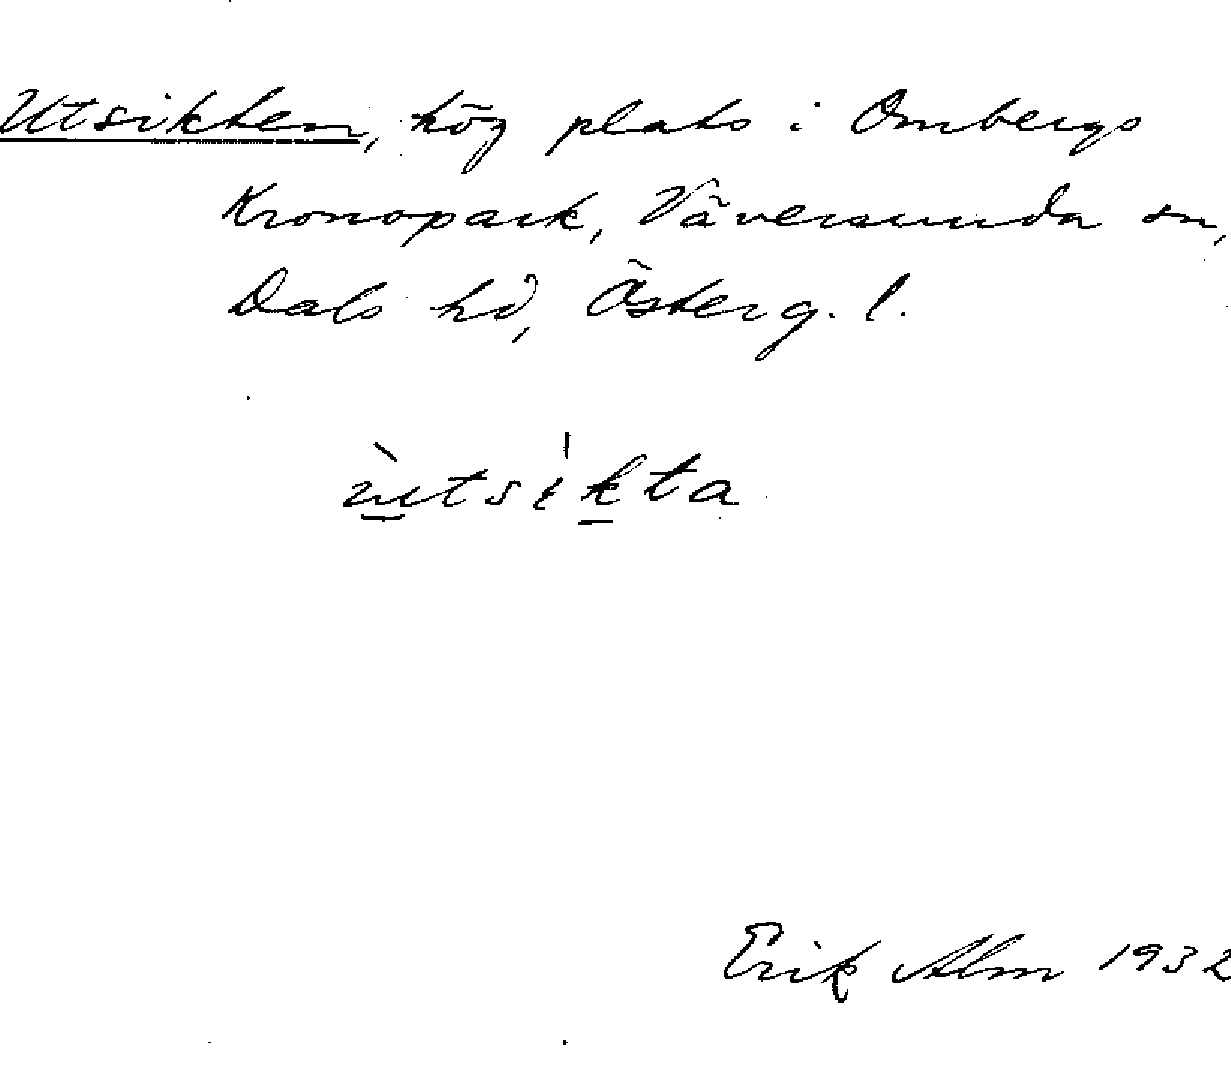 Utsikten, hög plats i Ombergs
Kronopark, Väversunda sn,
Dals hd, Österg. l.
ùtsíkta
Erik Alm 1932